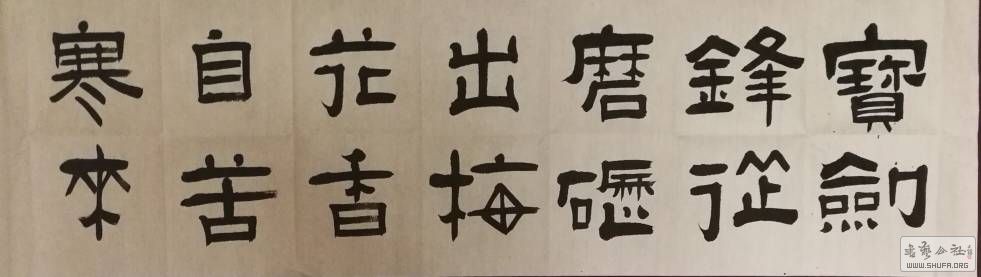 寶劍
鋒從
磨礪
出梅
花香
自苦
寒來
書藝公社
WWW.SHUFA.ORG